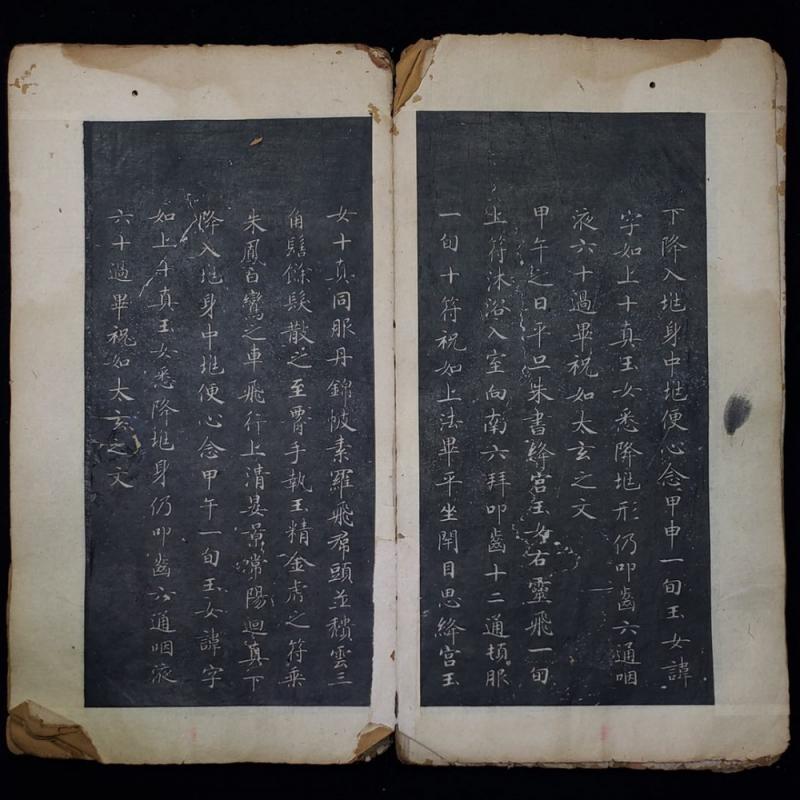 下降入㘽身中㘽便心念甲申一旬玉女諱
字如上十真玉女悉降㘽形仍叩齒六通咽
液六十過畢祝如太玄之文
甲午之日平旦朱書絳宮玉女右靈飛一旬
上符沐浴入室向南六拜叩齒十二通頓服
一旬十符祝如上法畢平坐閉目思絳宮玉
女十真同服丹錦帔素羅飛帬頭並穨雲三
角髻餘髮散之至腰手執玉精金虎之符乘
朱鳳白鸞之車飛行上清晏景常陽迴真下
降入㘽身中㘽便心念甲午一旬玉女諱字
如上十真玉女悉降㘽身仍叩齒六通咽液
六十過畢祝如太玄之文